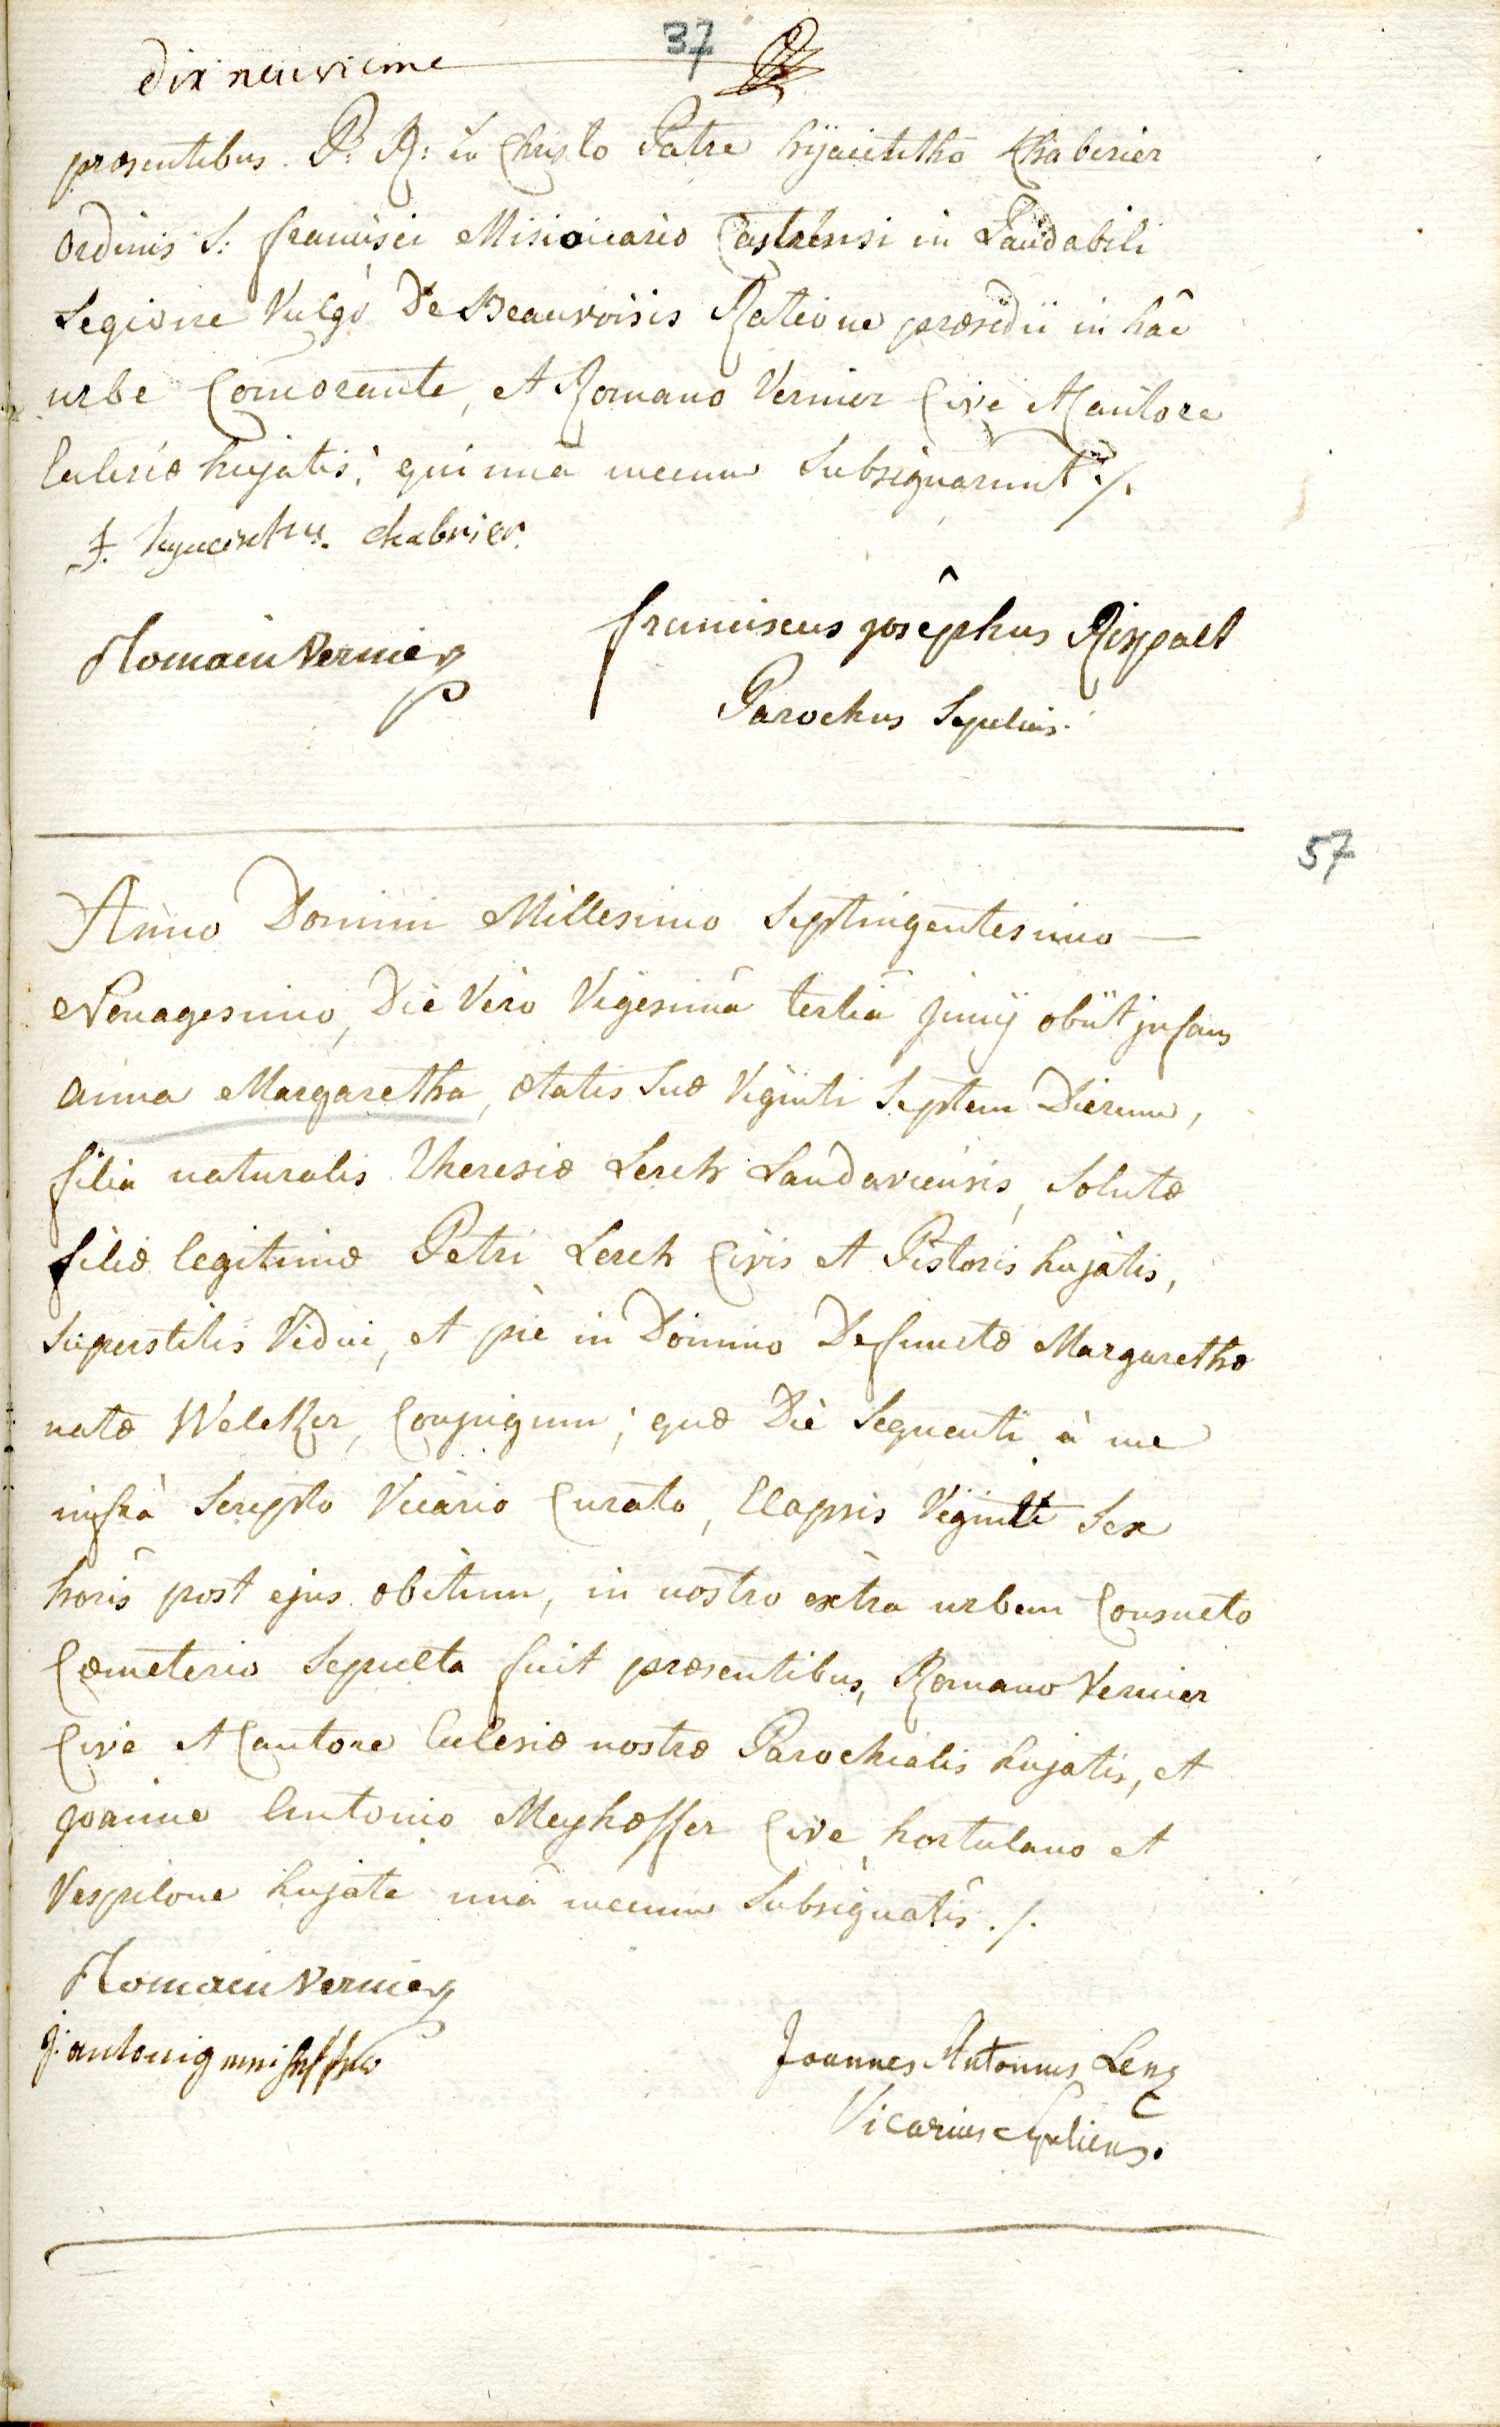 37
dix neuvieme
præsentibus P: R: in Christo Patre hÿacintho Chaberier
Ordinis S: francisci Misionario Castrensi in Laudabili
Legione Vulgò De Beauvoisis Ratione præsidii in hâc
urbe Comorante, et Romano Vernier Cive et Cantore
Eclesiæ hujatis; qui unà mecum Subsignarunt ./.
f. hyacinthus. chabrier.
Romain Vernier
franciscus josêphus Rixpalt
Parochus Sepeliens.
57
Anno Domini Millesimo Septingentesimo —
Nonagesimo, Die Vero Vigesimâ tertiâ Junÿ obiit jnfans
anna Margaretha, ætatis Suæ Viginti Septem Dierum,
filia naturalis Theresiæ Lerch Landaviensis, Solutæ
filiæ legitimæ Petri Lerch Civis et Pistoris hujatis,
Superstitis Vidui, et piè in Domino Defunctæ Margarethæ
natæ WelcKer, Conjugum; quæ Die Sequenti à me
infrà Scripto Vicario Curato, Elapsis Viginti Sex
horis post ejus obitum, in nostro extra urbem Consueto
Cœmeterio Sepulta fuit præsentibus, Romano Vernier
Cive et Cantore Eclesiæ nostræ Parochialis hujatis, et
joanne Antonio Meyhœffer Cive, hortulano et
Vespilone hujate unâ mecum Subsignatis ./.
Romain Vernier
j: antonig
Joannes Antonius Lenz
Vicarius Sepeliens.